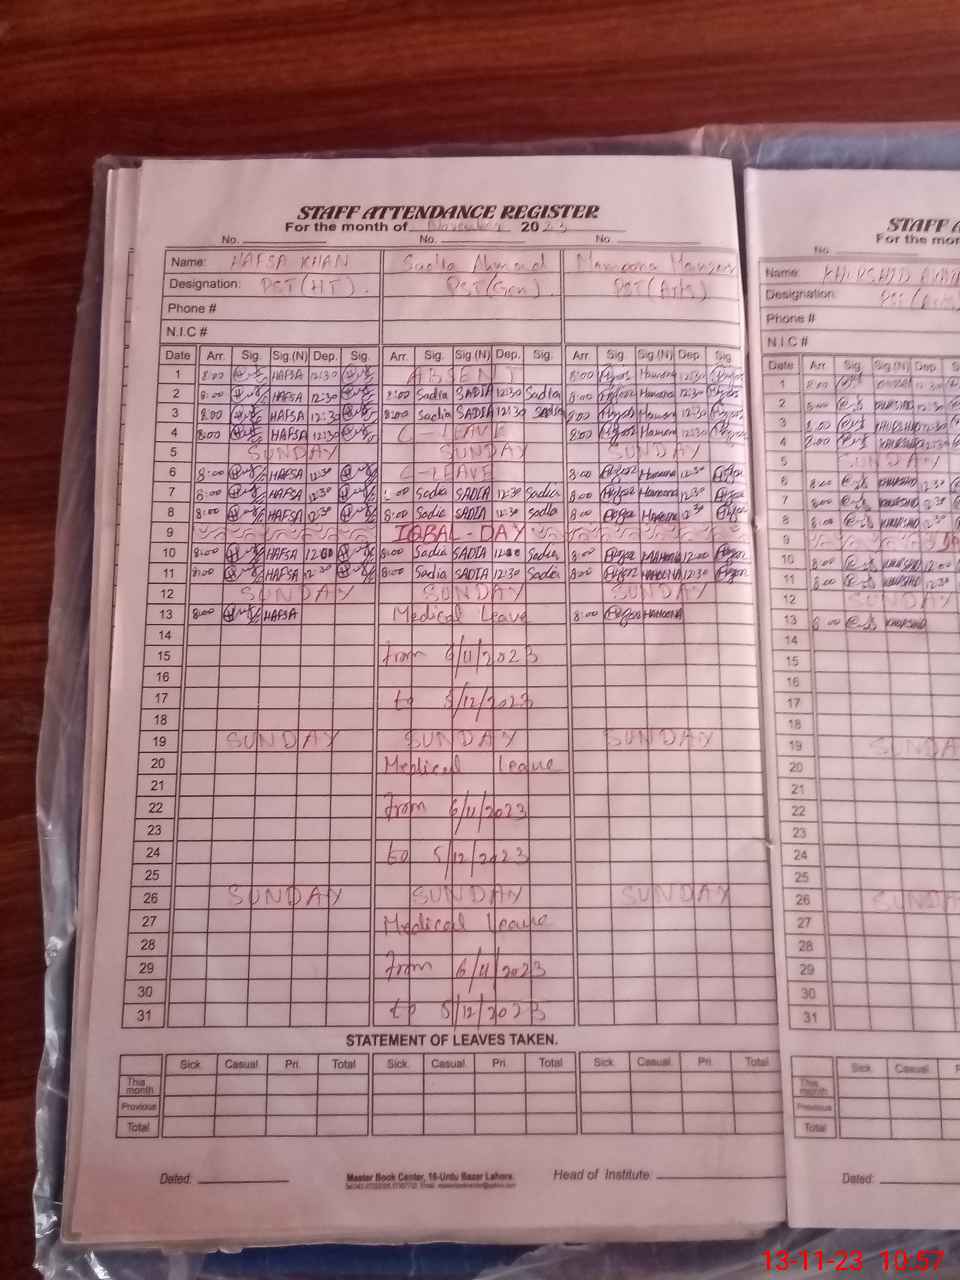 STAFF ATTENDANCE REGISTER
For the month of November 2023
No. No. No.
Name: HAFSA KHAN Sadia Ahmad Mamoona Manzoor
Designation: PST(HT). PST(Gen). PST(Arts)
Phone #
N.I.C #
Date Arr. Sig. Sig.(N) Dep. Sig. Arr. Sig. Sig.(N) Dep. Sig. Arr. Sig. Sig.(N) Dep. Sig.
1 8:00 HAFSA 12:30 ABSENT 8:00 12:30
2 8:00 HAFSA 12:30 8:00 Sadia SADIA 12:30 Sadia 8:00 12:30
3 8:00 HAFSA 12:30 8:00 Sadia SADIA 12:30 Sadia 8:00 12:30
4 8:00 HAFSA 12:30 C-LEAVE 8:00 12:30
5 SUNDAY SUNDAY SUNDAY
6 8:00 HAFSA 12:30 C-LEAVE 8:00 12:30
7 8:00 HAFSA 12:30 :00 Sadia SADIA 12:30 Sadia 8:00 12:30
8 8:00 HAFSA 12:30 8:00 Sadia SADIA 12:30 Sadia 8:00 12:30
9 IQBAL-DAY
10 8:00 HAFSA 12:00 8:00 Sadia SADIA 12:00 Sadia 8:00 12:00
11 8:00 HAFSA 12:30 8:00 Sadia SADIA 12:30 Sadia 8:00 12:30
12 SUNDAY SUNDAY SUNDAY
13 8:00 HAFSA Medical Leave 8:00
14
15 from 6/11/2023
16
17 to 5/12/2023
18
19 SUNDAY SUNDAY SUNDAY
20 Medical Leave
21
22 from 6/11/2023
23
24 to 5/12/2023
25
26 SUNDAY SUNDAY SUNDAY
27 Medical Leave
28
29 from 6/11/2023
30
31 to 5/12/2023
STATEMENT OF LEAVES TAKEN.
Sick Casual Pri. Total Sick. Casual. Pri. Total Sick. Casual Pri. Total
This month
Previous
Total
Dated: Master Book Center, 16-Urdu Bazar Lahore. Head of Institute:
STAFF A
For the mon
No.
Name: KHURSHID
Designation: PST
Phone #
N.I.C #
Date Arr. Sig. Sig.(N) Dep. S
1 8:00 KHURSHID 12:30
2 8:00 KHURSHID 12:30
3 8:00 KHURSHID 12:30
4 8:00 KHURSHID 12:30
5 SUNDAY
6 8:00 KHURSHID 12:30
7 8:00 KHURSHID 12:30
8 8:00 KHURSHID 12:30
9
10 8:00 KHURSHID 12:00
11 8:00 KHURSHID 12:30
12 SUNDAY
13 8:00 KHURSHID
14
15
16
17
18
19 SUNDAY
20
21
22
23
24
25
26 SUNDAY
27
28
29
30
31
Sick Casual. P
This month
Previous
Total
Dated:
13-11-23 10:57